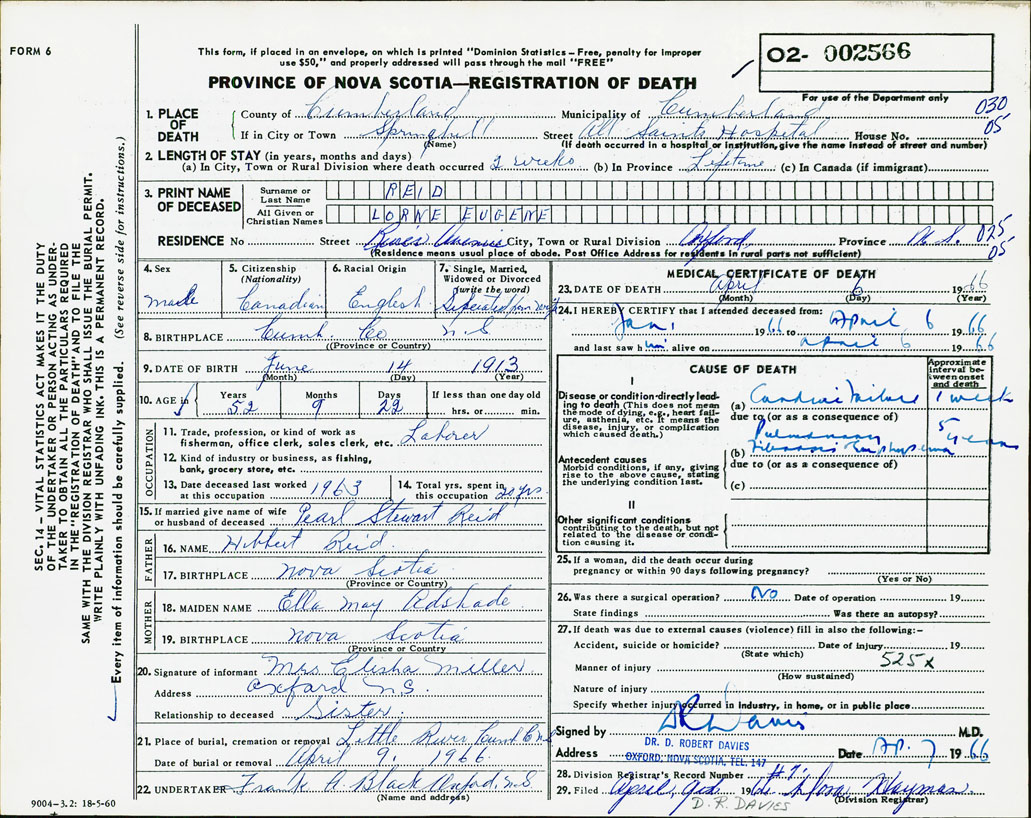 FORM 6
This form, if placed in an envelope, on which is printed "Dominion Statistics – Free, penalty for improper
use $50," and properly addressed will pass through the mail "FREE"
PROVINCE OF NOVA SCOTIA—REGISTRATION OF DEATH
O2- 002566
For use of the Department only
030
05
1. PLACE OF DEATH
County of Cumberland Municipality of Cumberland
If in City or Town Springhill Street All Saints Hospital House No.
(Name) (If death occurred in a hospital or institution, give the name instead of street and number)
2. LENGTH OF STAY (in years, months and days)
(a) In City, Town or Rural Division where death occurred 2 weeks (b) In Province Lifetime (c) In Canada (if immigrant)
3. PRINT NAME OF DECEASED
Surname or Last Name REID
All Given or Christian Names LORNE EUGENE
RESIDENCE No Street Avenue City, Town or Rural Division Oxford Province N. S. 025
05
(Residence means usual place of abode. Post Office Address for residents in rural parts not sufficient)
4. Sex male
5. Citizenship (Nationality) Canadian
6. Racial Origin English
7. Single, Married, Widowed or Divorced (write the word) Seperated from wife
8. BIRTHPLACE Cumb. Co N.S
(Province or Country)
9. DATE OF BIRTH June 14 1913
(Month) (Day) (Year)
10. AGE in Years 52 Months 9 Days 22 If less than one day old hrs. or min.
OCCUPATION
11. Trade, profession, or kind of work as fisherman, office clerk, sales clerk, etc. Laborer
12. Kind of industry or business, as fishing, bank, grocery store, etc.
13. Date deceased last worked at this occupation 1963
14. Total yrs. spent in this occupation 20 yrs.
15. If married give name of wife or husband of deceased Pearl Stewart Reid
FATHER
16. NAME Hibbert Reid
17. BIRTHPLACE Nova Scotia
(Province or Country)
MOTHER
18. MAIDEN NAME Ella May Adshade
19. BIRTHPLACE Nova Scotia
(Province or Country)
20. Signature of informant Mrs. Elisha Miller
Address Oxford N.S.
Relationship to deceased Sister
21. Place of burial, cremation or removal Little River Cumb Co N.S.
Date of burial or removal April 9, 1966
22. UNDERTAKER Frank A. Black Oxford, N.S.
(Name and address)
MEDICAL CERTIFICATE OF DEATH
23. DATE OF DEATH April 6 1966
(Month) (Day) (Year)
24. I HEREBY CERTIFY that I attended deceased from:
Jan. 1966 to April 6 1966
and last saw him alive on April 6 1966
CAUSE OF DEATH
Approximate interval between onset and death
I
Disease or condition directly leading to death (This does not mean the mode of dying, e.g., heart failure, asthenia, etc. It means the disease, injury, or complication which caused death.)
(a) Cardiac Failure 1 week
due to (or as a consequence of)
Antecedent causes
Morbid conditions, if any, giving rise to the above cause, stating the underlying condition last.
(b) Pulmonary Fibrosis Emphysema 5 years
due to (or as a consequence of)
(c)
II
Other significant conditions
contributing to the death, but not related to the disease or condition causing it.
25. If a woman, did the death occur during
pregnancy or within 90 days following pregnancy?
(Yes or No)
26. Was there a surgical operation? No Date of operation 19
State findings Was there an autopsy?
27. If death was due to external causes (violence) fill in also the following:–
Accident, suicide or homicide? Date of injury 19
(State which)
525x
Manner of injury
(How sustained)
Nature of injury
Specify whether injury occurred in industry, in home, or in public place
Signed by D R Davies M.D.
DR. D. ROBERT DAVIES
OXFORD, NOVA SCOTIA, TEL. 147
Address Date Ap. 7 1966
28. Division Registrar's Record Number #7
29. Filed April 9th 1966 Hayman
(Division Registrar)
D. R. DAVIES
SEC. 14 – VITAL STATISTICS ACT MAKES IT THE DUTY
OF THE UNDERTAKER OR PERSON ACTING AS UNDER-
TAKER TO OBTAIN ALL THE PARTICULARS REQUIRED
IN THE "REGISTRATION OF DEATH" AND TO FILE THE
SAME WITH THE DIVISION REGISTRAR WHO SHALL ISSUE THE BURIAL PERMIT.
WRITE PLAINLY WITH UNFADING INK. THIS IS A PERMANENT RECORD.
Every item of information should be carefully supplied. (See reverse side for instructions.)
9004–3.2: 18-5-60